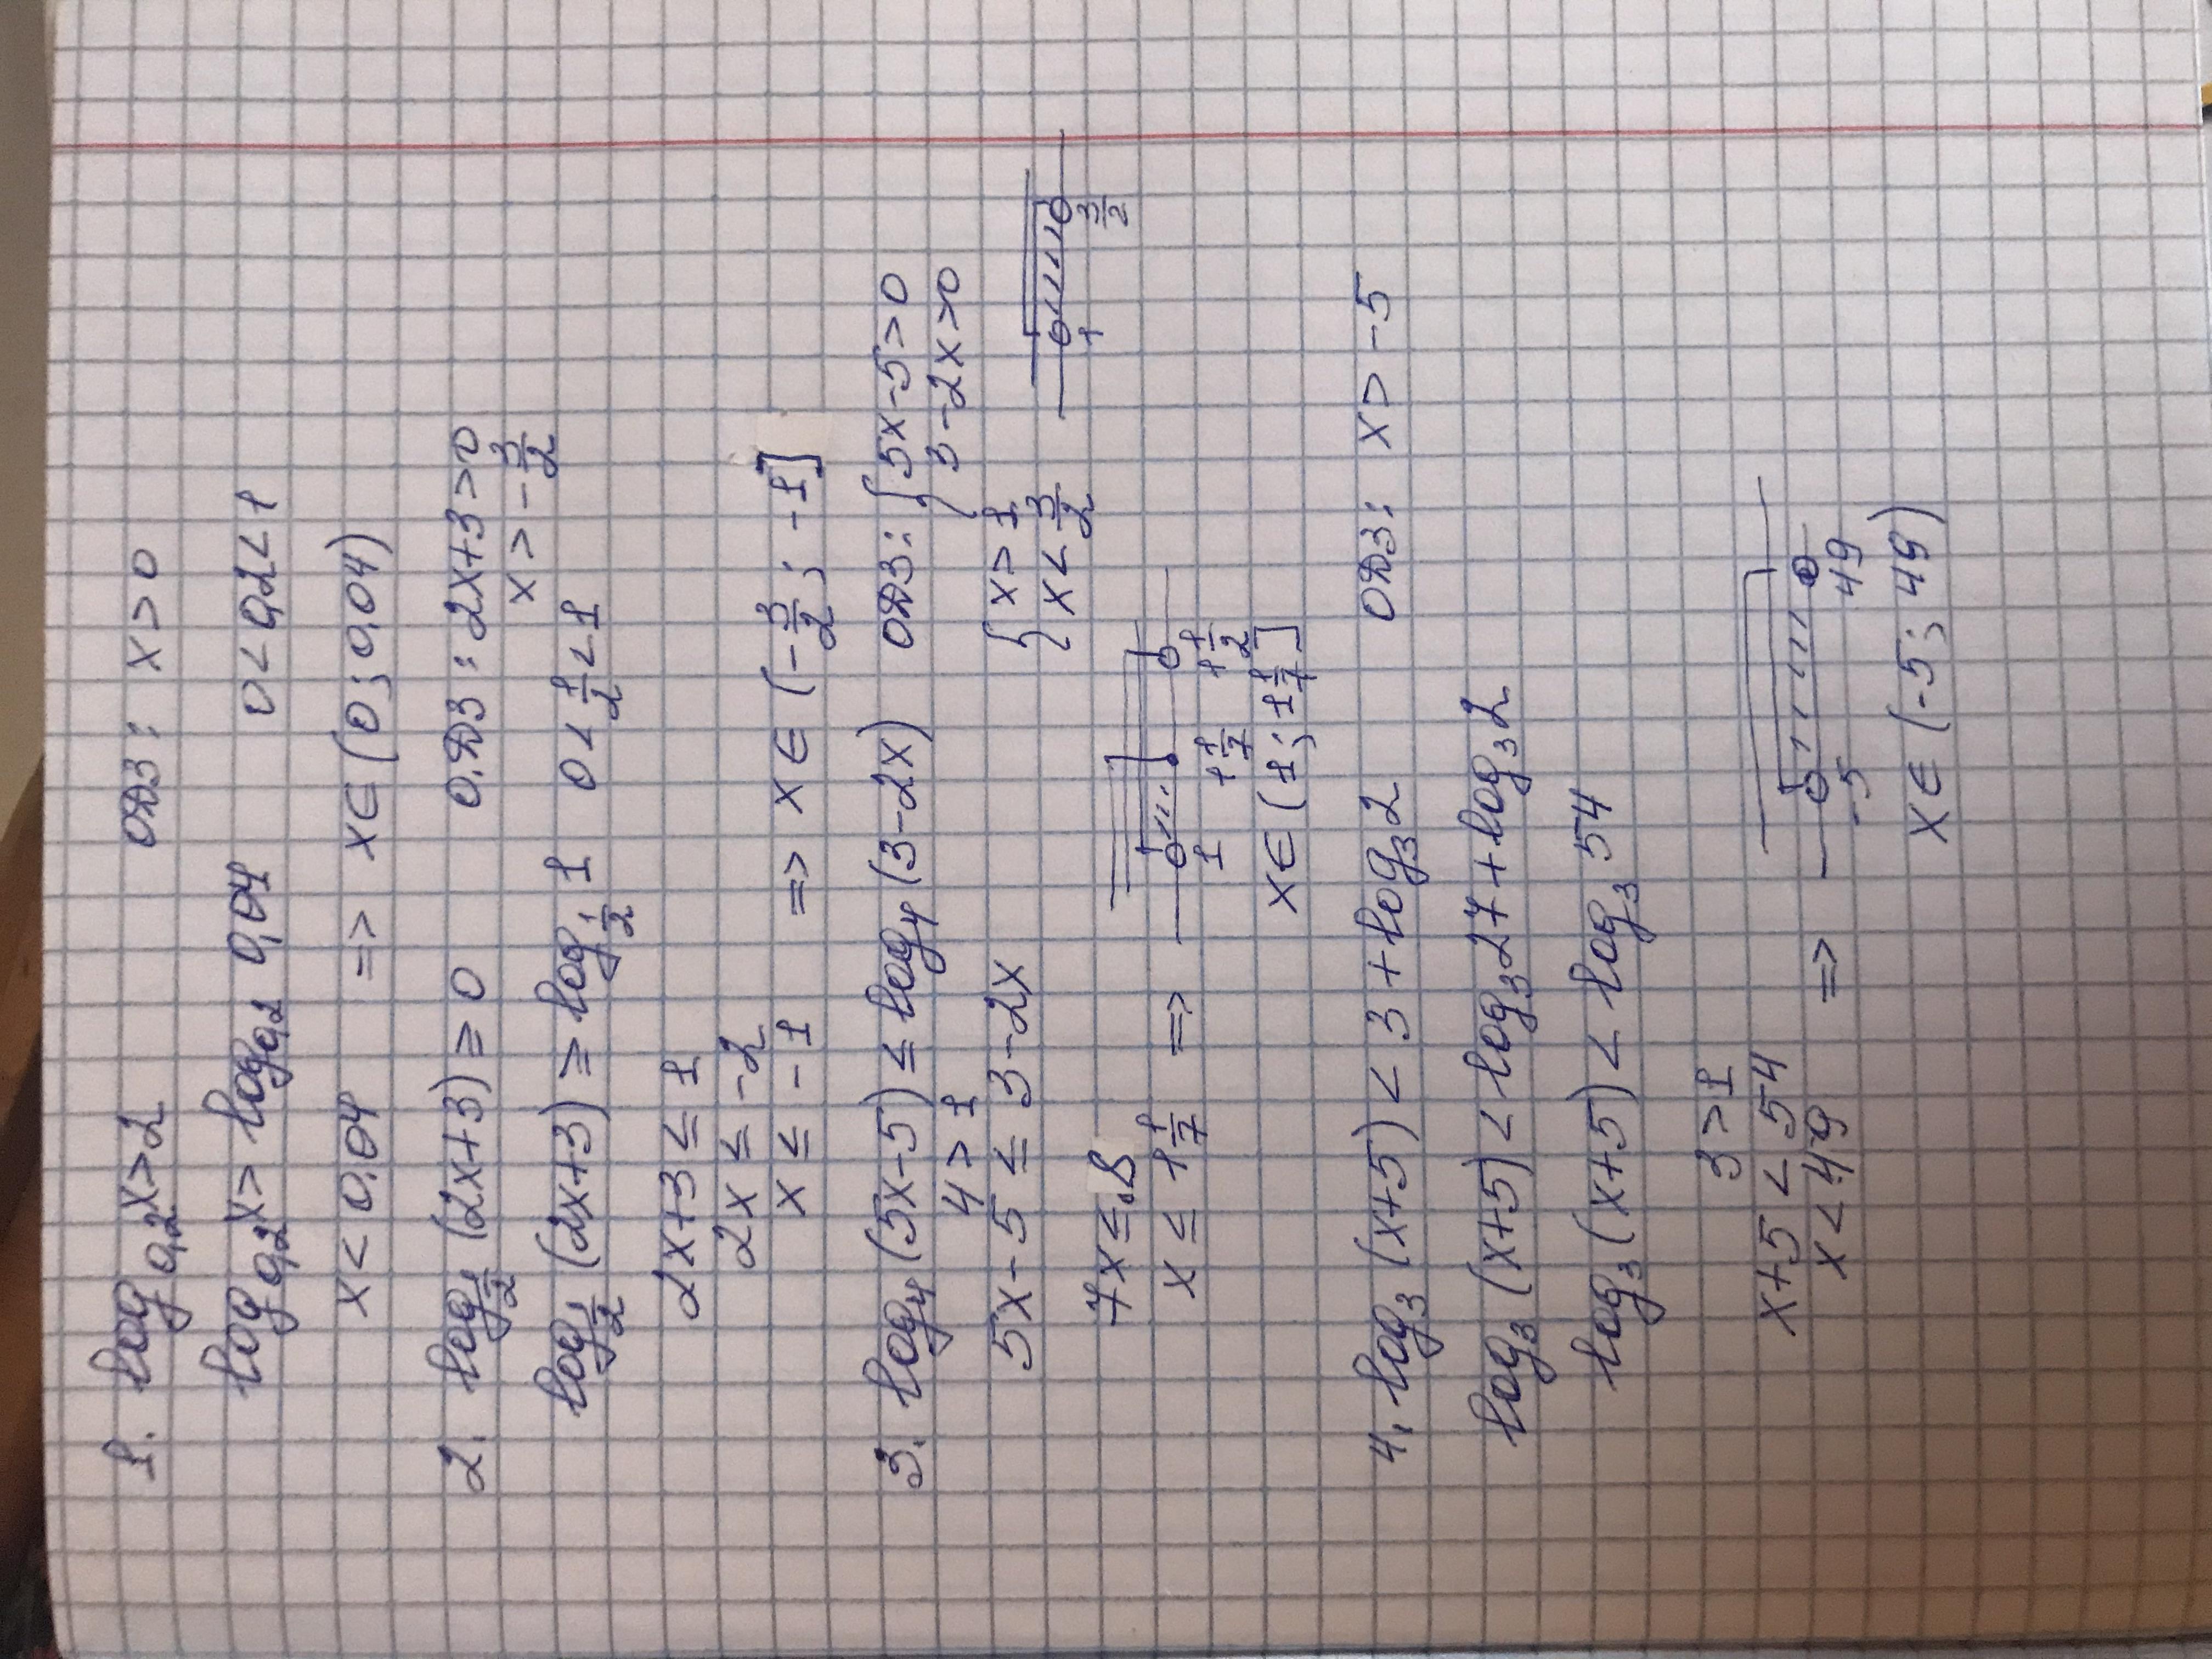 1. log₀,₂x>2 ОДЗ: x>0
log₀,₂x> log₀,₂ 0,04 0<0,2<1
x<0,04 => x∈(0; 0,04)
2. log½ (2x+3)≥0 ОДЗ: 2x+3>0
x>-3/2
log½ (2x+3) ≥ log½ 1 0<½<1
2x+3≤1
2x≤-2
x≤-1 => x∈(-3/2; -1]
3. log₄(5x-5)≤log₄(3-2x) ОДЗ: {5x-5>0
3-2x>0
4>1
5x-5≤3-2x {x>1
x<3/2
1 3/2
7x≤8
x≤1 1/7 =>
1 1 1/7 1 1/2
x∈(1; 1 1/7]
4. log₃(x+5)<3+log₃2 ОДЗ: x>-5
log₃(x+5)<log₃27+log₃2
log₃(x+5)<log₃54
3>1
x+5<54
x<49 =>
-5 49
x∈(-5; 49)